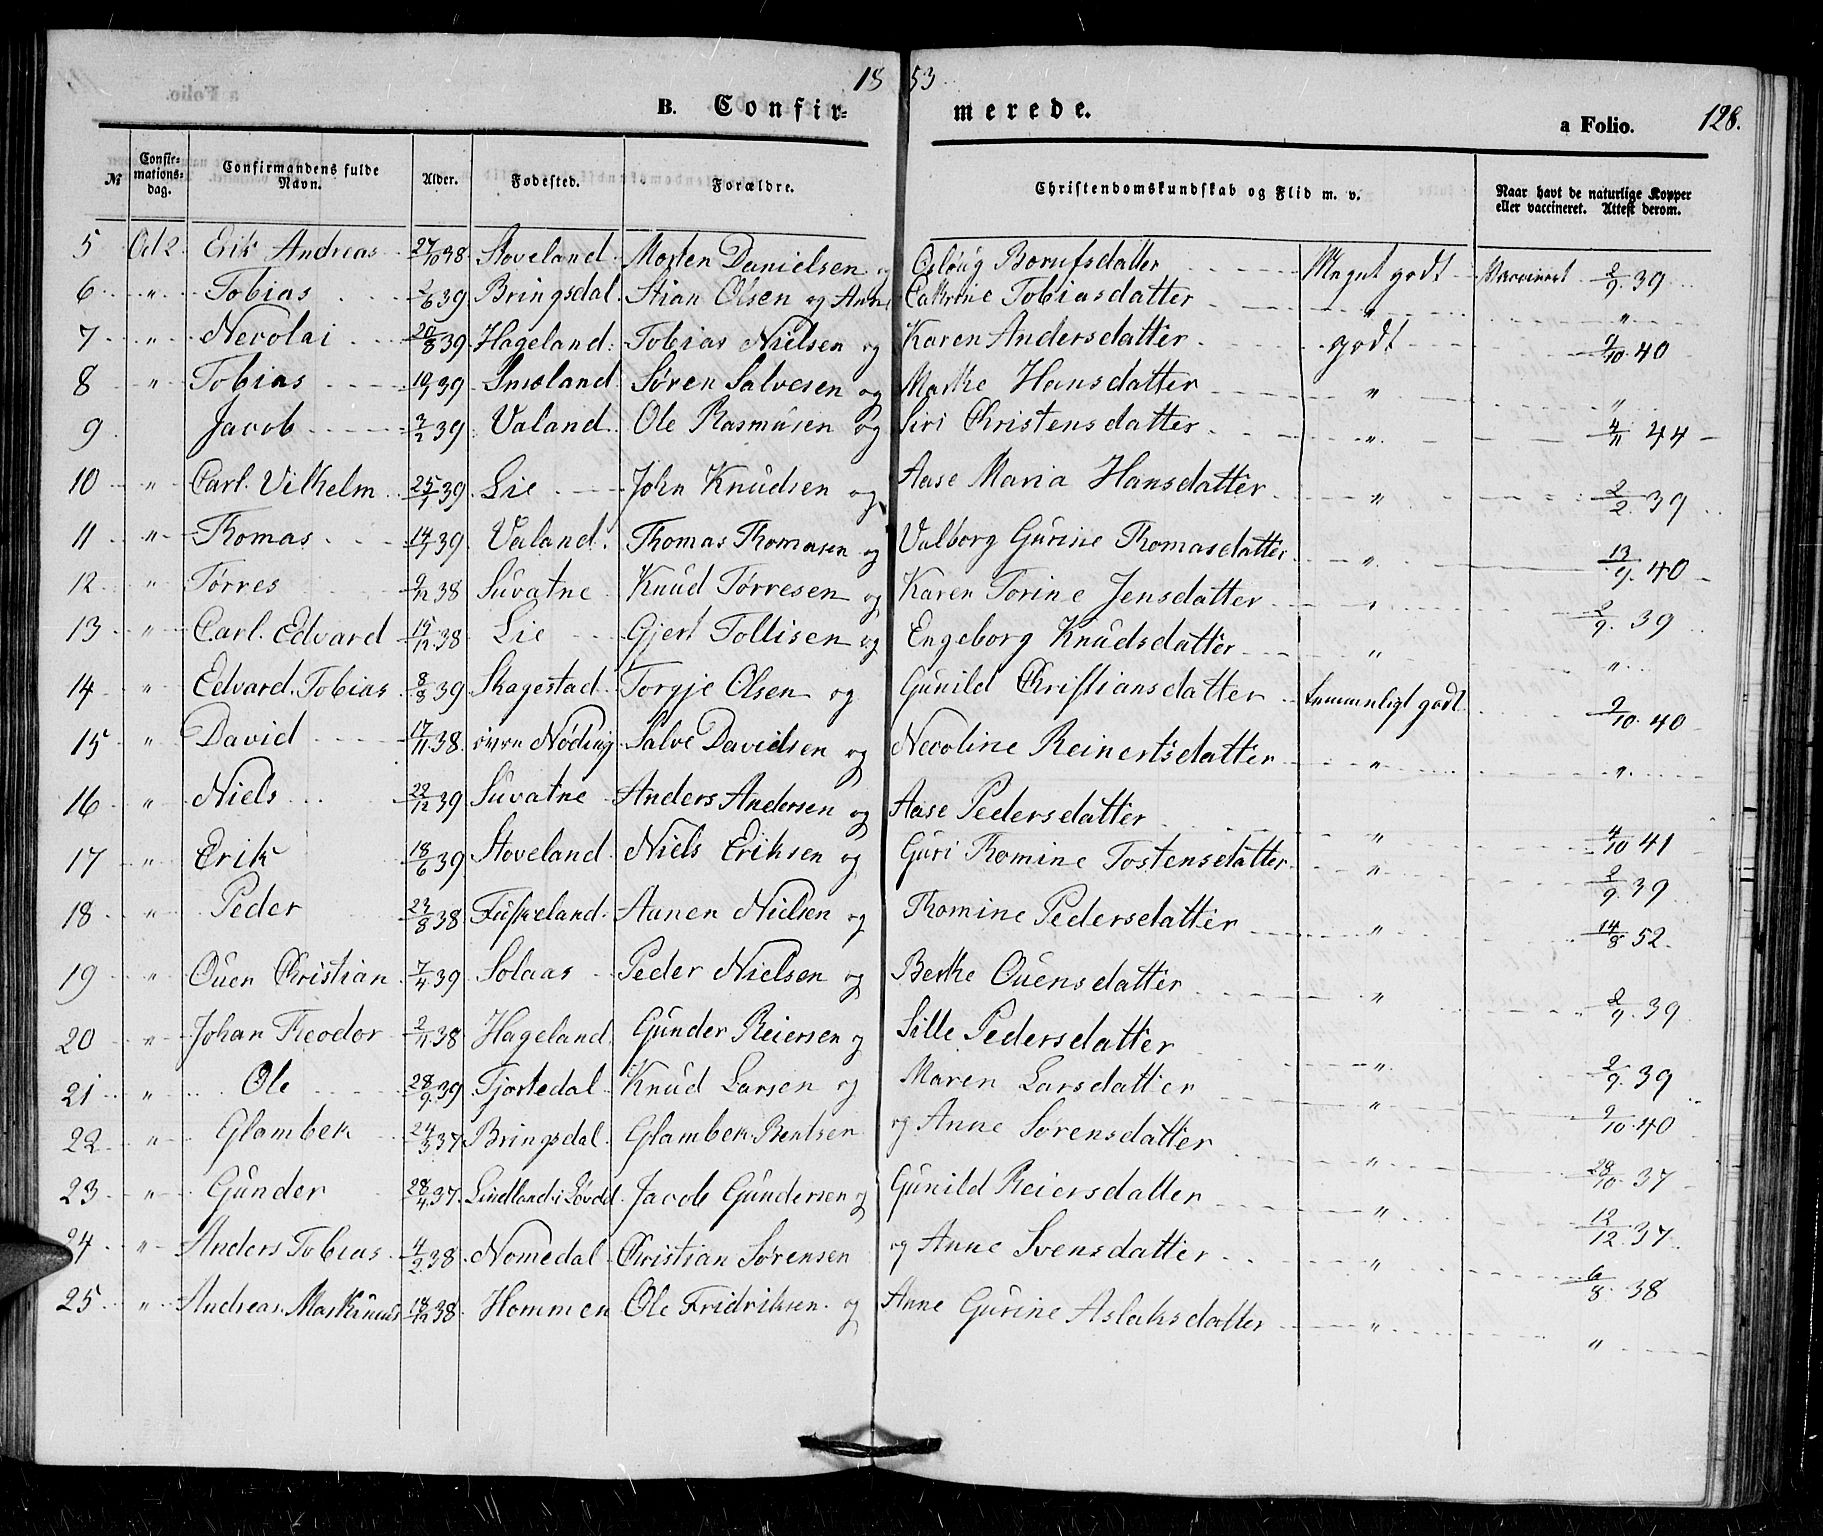 1853
B. Confirmerede.
a Folio. 128.
№ Confirmationsdag. Confirmandens fulde Navn. Alder. Fødested. Forældre. Christendomskundskab og Flid m. v. Naar havt de naturlige Kopper eller vaccineret. Attest derom.
5 Oct 2 Erik Andreas 27/10 38 Stoveland Morten Danielsen og Osloug Borufsdatter Meget godt Vaccineret 2/9 39
6 " Tobias 2/6 39 Bringsdal Stian Olsen og Anne Cathrine Tobiasdatter " "
7 " Necolai 20/8 39 Hageland Tobias Nielsen og Karen Andersdatter godt 9/10 40
8 " Tobias 10/1 39 Smeland Søren Salvesen og Marthe Hansdatter " "
9 Jacob 3/2 39 Valand Ole Rasmusen og Siri Christensdatter " 4/11 44
10 " Carl Vilhelm 25/1 39 Lie John Knudsen og Aase Maria Hansdatter " 2/2 39
11 " Thomas 14/7 39 Valand Thomas Thomasen og Valborg Gurine Thomasdatter " 13/9 40
12 " Tørres 9/12 38 Suvatne Knud Tørresen og Karen Torine Jensdatter " 2/9 39
13 " Carl Edvard 15/12 38 Lie Gjert Tollisen og Engeborg Knudsdatter " "
14 " Edvard Tobias 8/8 39 Skagestad Torgje Olsen og Gunild Christiansdatter temmeligt godt 9/10 40
15 " David 17/11 38 øvre Nøding Salve Davidsen og Necoline Reinertsdatter " "
16 " Niels 22/12 39 Suvatne Anders Andersen og Aase Pedersdatter " 4/10 41
17 " Erik 18/6 39 Stoveland Niels Eriksen og Guri Thomine Tostensdatter " 2/9 39
18 " Peder 23/8 38 Fuskeland Aanen Nielsen og Thomine Pedersdatter " 14/8 52
19 " Ouen Christian 7/4 39 Solaas Peder Nielsen og Berthe Ouensdatter " 2/9 39
20 " Johan Theodor 2/11 38 Hageland Gunder Reiersen og Sille Pedersdatter " 2/9 39
21 " Ole 28/9 39 Tjortedal Knud Larsen og Maren Larsdatter " 9/10 40
22 " Glambek 24/3 37 Bringsdal Glambek Bentsen og Anne Sørensdatter " 28/10 37
23 " Gunder 28/4 37 Lindland i Løvdal Jacob Gundersen og Gunild Reiersdatter " 12/12 37
24 " Anders Tobias 4/2 38 Nomedal Christian Sørensen og Anne Svensdatter " 6/8 38
25 " Andreas Mathinius 18/12 38 Hommen Ole Fridriksen og Anne Gurine Aslaksdatter " "